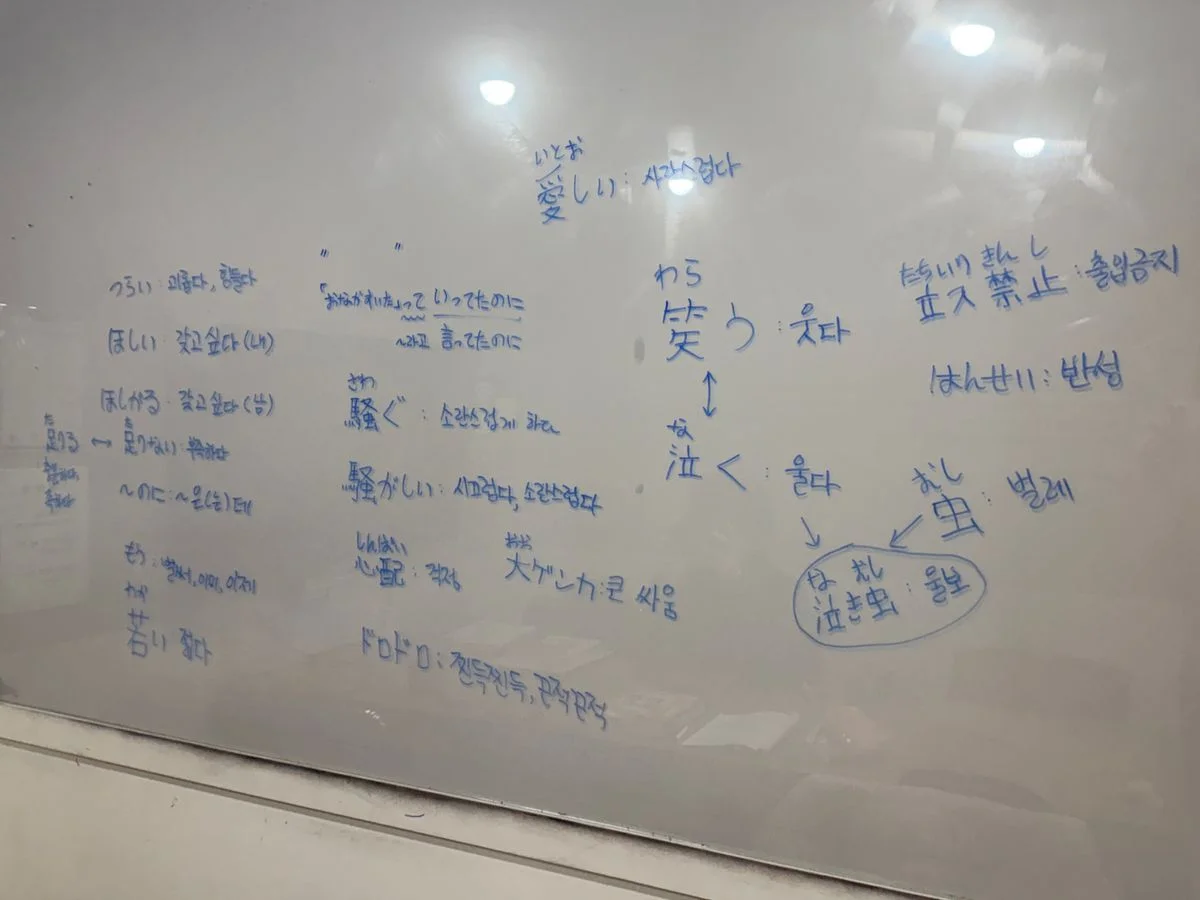 いとお
愛しい : 사랑스럽다
つらい : 괴롭다, 힘들다
ほしい : 갖고 싶다 (나)
ほしがる : 갖고 싶다 (남)
た た
足りる ↔ 足りない : 부족하다
충분하다,
족하다
~のに : ~은(는)데
もう : 벌써, 이미, 이제
わか
若い 젊다
" "
「おなかすいた」って いってたのに
~라고 言ってたのに
さわ
騒ぐ : 소란스럽게 하다
騒がしい : 시끄럽다, 소란스럽다
しんぱい
心配 : 걱정
おお
大ゲンカ : 큰 싸움
ドロドロ : 찐득찐득, 끈적끈적
わら
笑う : 웃다
↕
な
泣く : 울다
たちいり きんし
立入禁止 : 출입금지
はんせい : 반성
むし
虫 : 벌레
な むし
泣き虫 : 울보